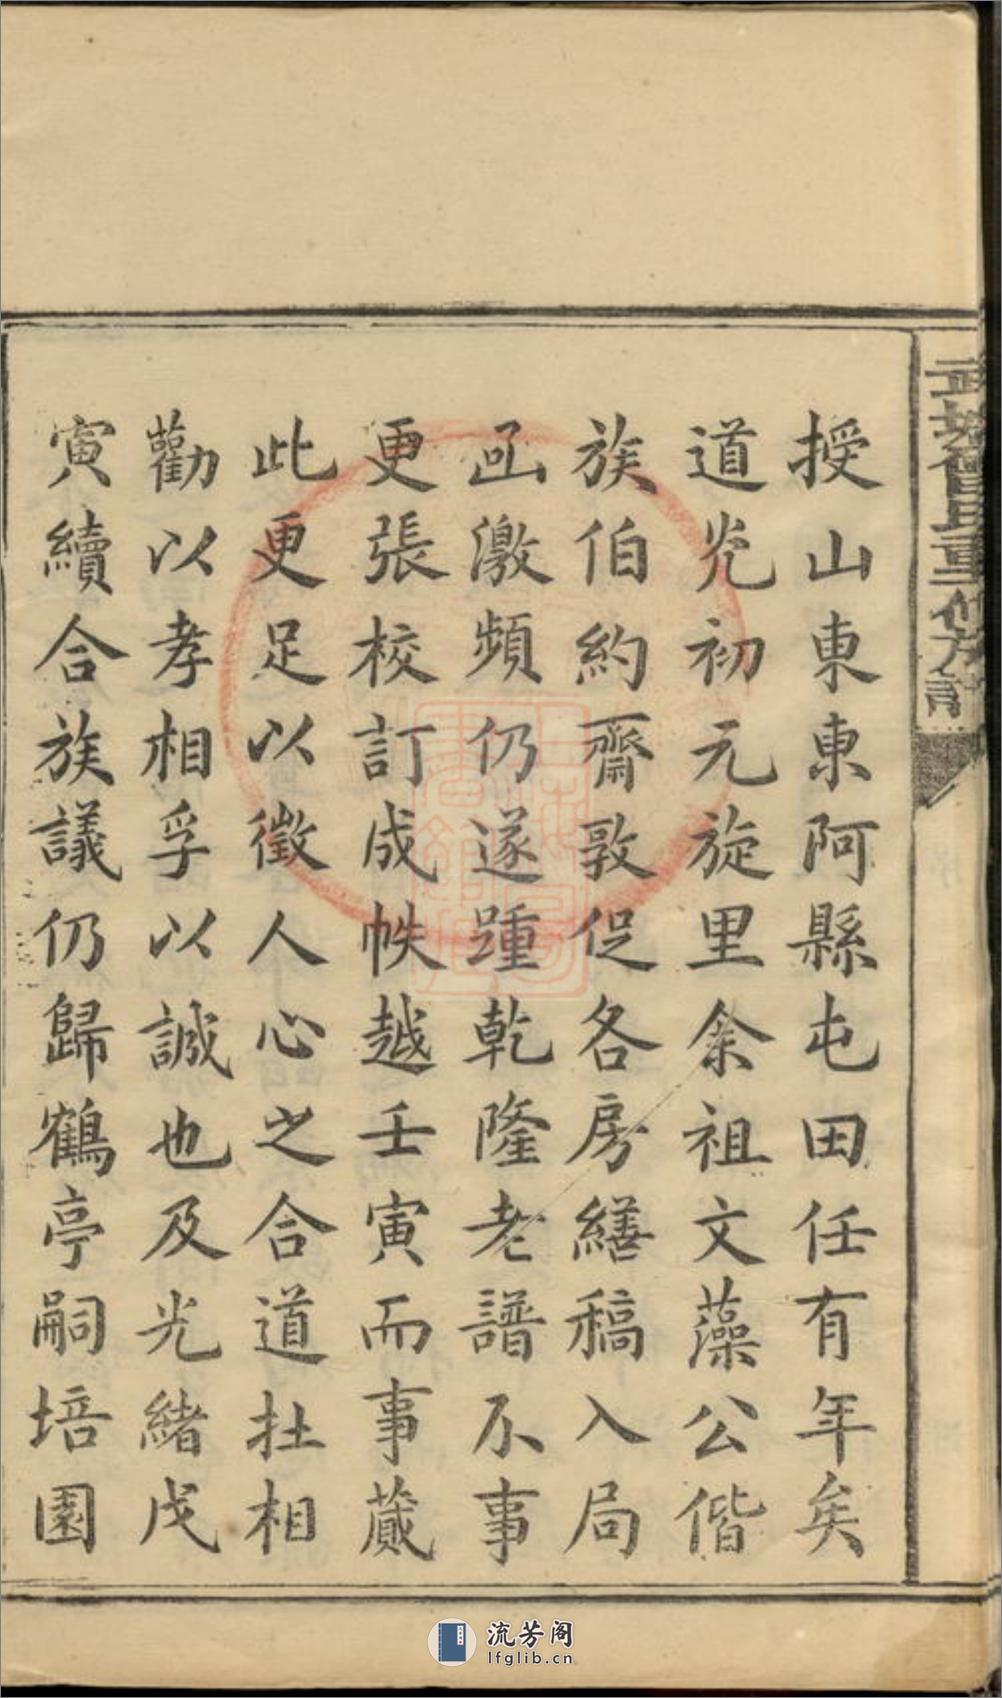 授山東東阿縣屯田任有年矣
道光初元旋里余祖文藻公偕
族伯約齋敦促各房繕稿入局
函激頻仍遂踵乾隆老譜不事
更張校訂成帙越壬寅而事蕆
此更足以徵人心之合道在相
勸以孝相孚以誠也及光緒戊
寅續合族議仍歸鶴亭嗣培園
流芳阁
lfglib.cn